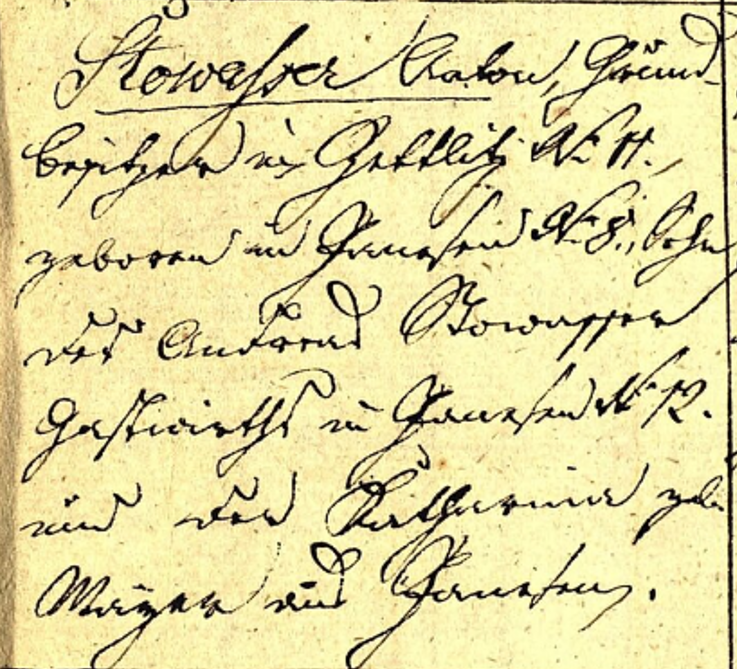 Stowasser Anton, Grund-
besitzer in Gettlitz N: 11.,
geboren in Janessen N: 8., Sohn
des Andreas Stowasser
Gastwirths in Janessen N: 12.
und der Katharina geb.
Mayer aus Janessen.